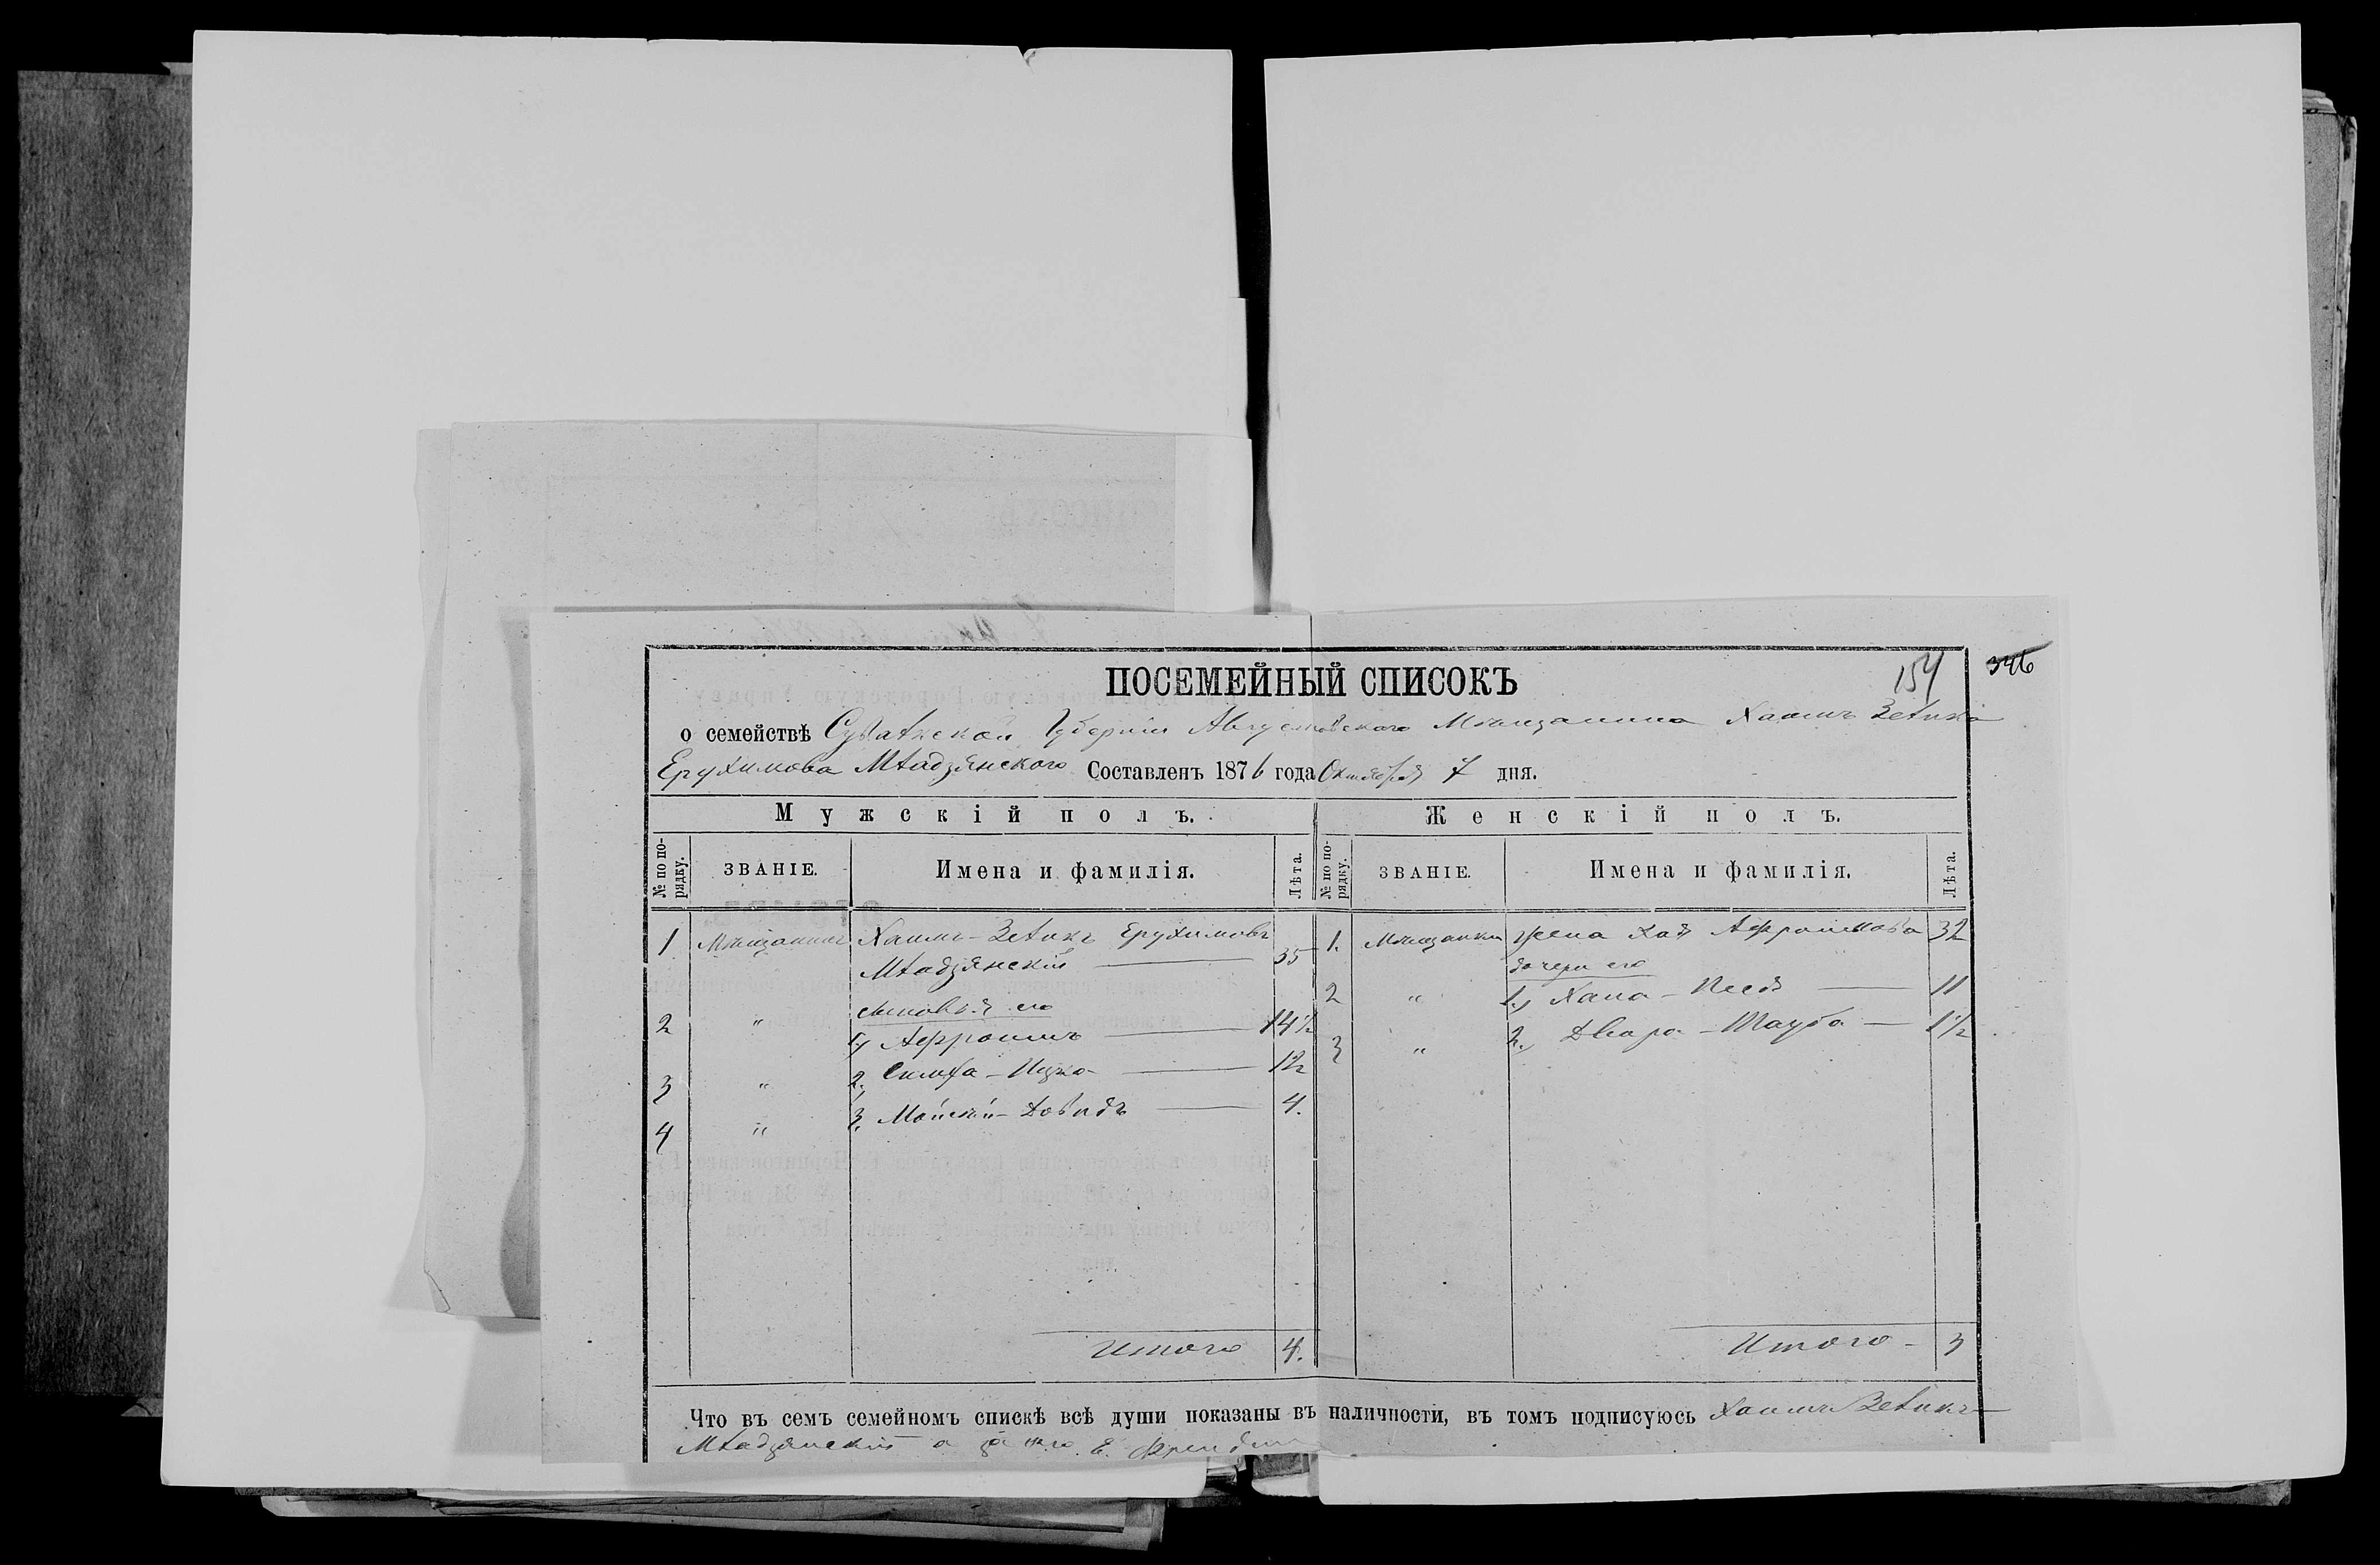 ПОСЕМЕЙНЫЙ СПИСОКЪ
154
346
о семействѣ Сувалкской Губерніи Августовскаго Мѣщанина Хаимъ Зелика
Ерухимова Младзянскаго Составленъ 1876 года Октября 7 дня.
Мужскій полъ. Женскій полъ.
№ по порядку. ЗВАНІЕ. Имена и фамилія. Лѣта. № по порядку. ЗВАНІЕ. Имена и фамилія. Лѣта.
1 Мѣщанинъ Хаимъ-Зеликъ Ерухимовъ 1. Мѣщанки жена Хая Афроимова 32
Младзянскій 35 дочери его
сыновья его 2 " 1, Хана-Песя 11
2 " 1, Афроимъ 14½ 3 " 2, Двера-Тауба 1½
3 " 2. Симха-Ицко 12
4 " 3. Довидъ 4.
Итого 4. Итого - 3
Что въ семъ семейномъ спискѣ всѣ души показаны въ наличности, въ томъ подписуюсь Хаимъ Зеликъ
Младзянскій а за него Е.